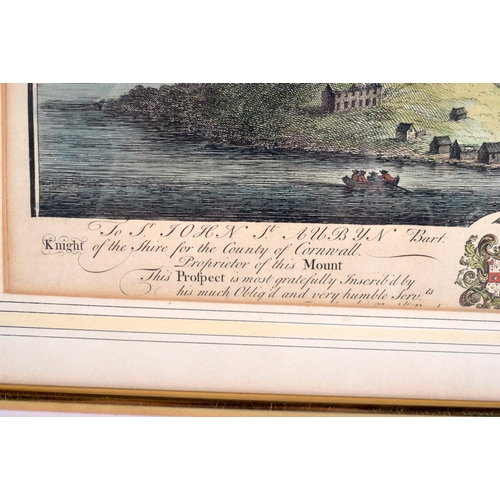 To Sr. IOHN St. AUBYN Bart.
Knight of the Shire for the County of Cornwall.
Proprietor of this Mount
This Proſpect is most gratefully Inscrib'd by
his much Oblig'd and very humble Serv.ts